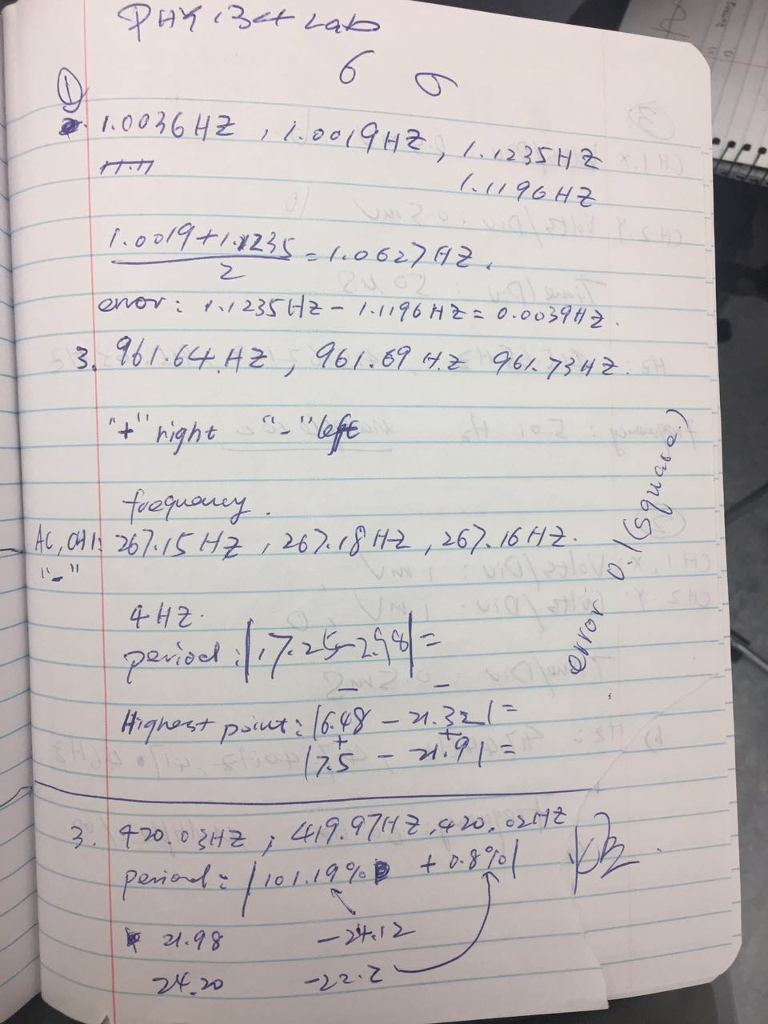 PHY 134 Lab
6 6
①
1.0036HZ, 1.0019HZ, 1.1235HZ
1.1196HZ
1.0019+1.1235
2
=1.0627HZ.
error: 1.1235HZ - 1.1196HZ = 0.0039HZ.
3. 961.64HZ, 961.69HZ 961.73HZ.
"+" right "-" left
frequency.
AC, CH1: 267.15HZ, 267.18HZ, 267.16HZ.
"-"
4HZ.
period: |17.25-2.98| =
error 0.1(square)
Highest point: |6.48 - 21.32| =
|7.5 - 21.9| =
3. 420.03HZ, 419.97HZ, 420.02HZ
period: |101.19% + 0.8%|
21.98 -24.12
24.20 -22.2